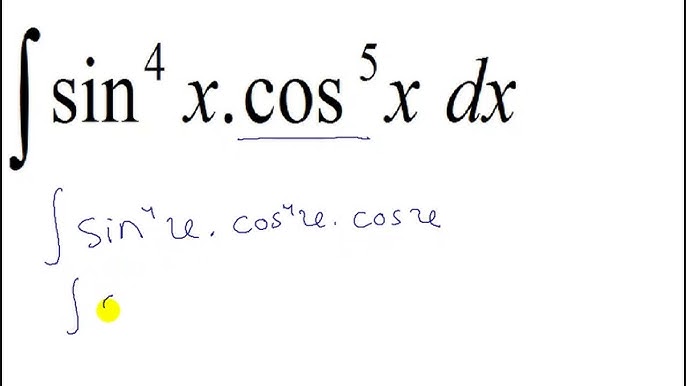 ∫ sin⁴ x.cos⁵ x dx
∫ sin⁴x. cos⁴x. cosx
∫